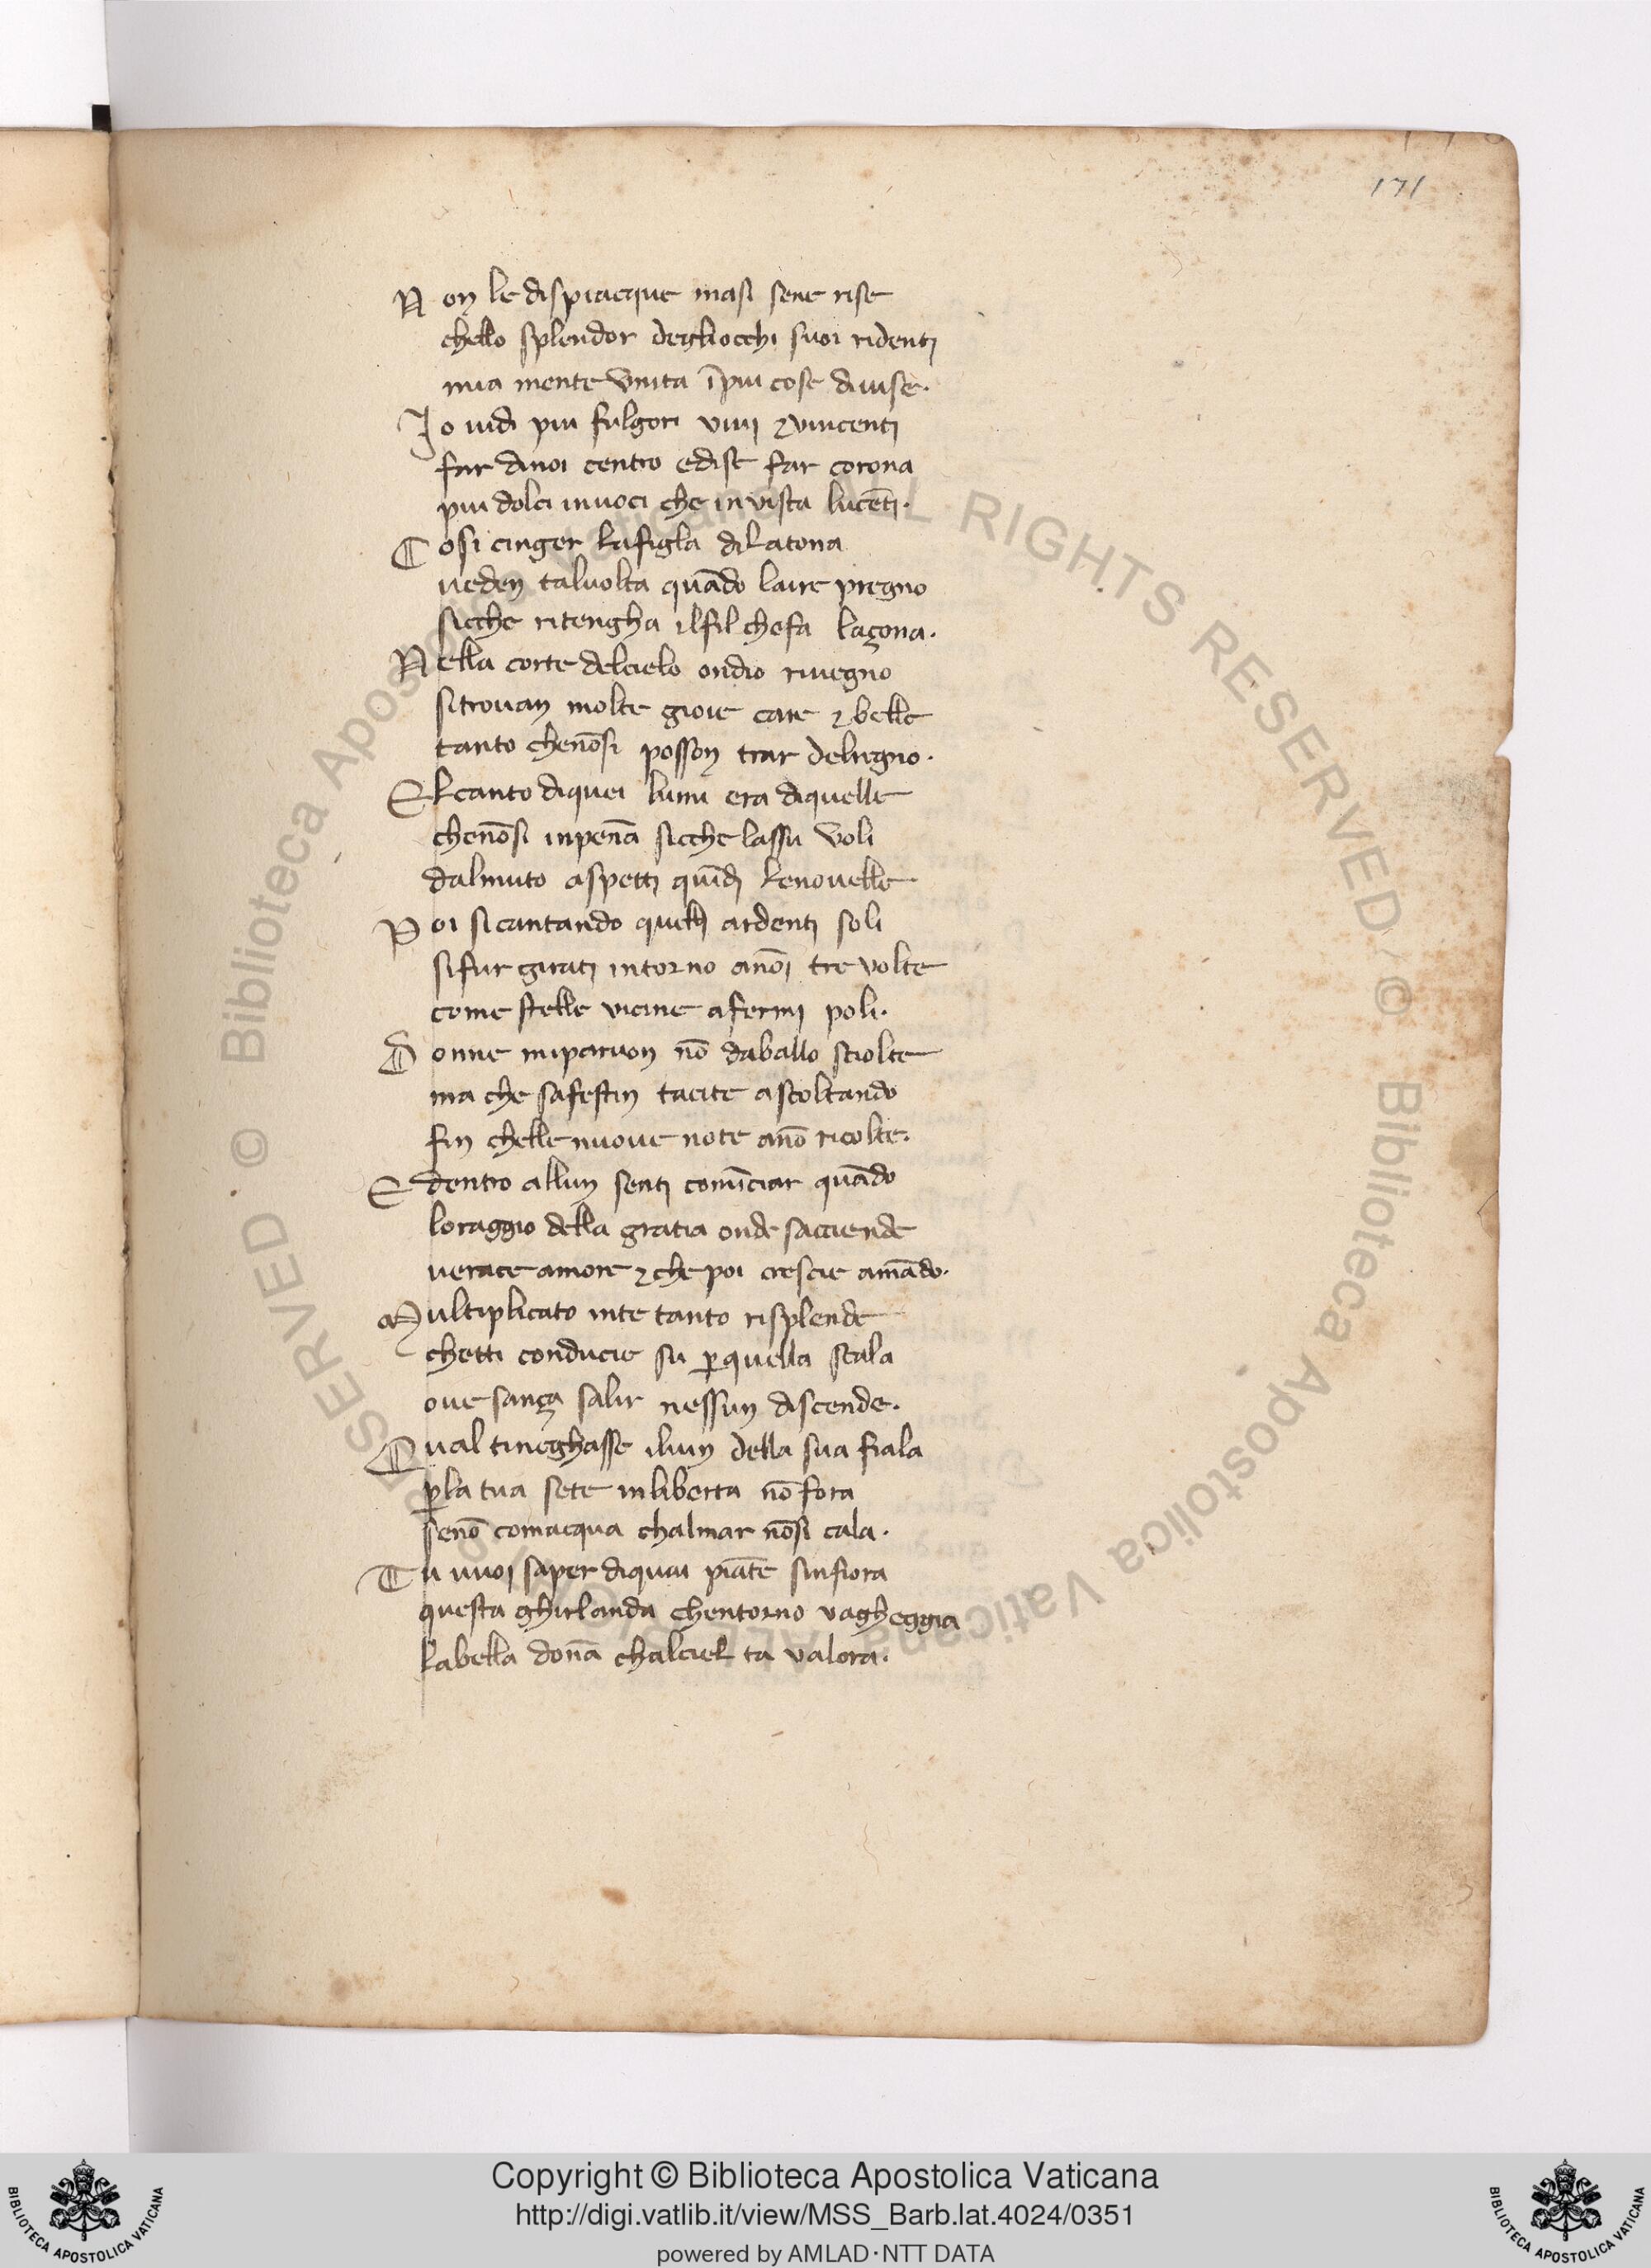 171
Non le dispiacque masi sene rise
chello splendor degliocchi suoi ridentj
mia mente vnita ī piu cose diuise.
Jo uidi piu fulgori viuj ⁊ vincentj
far dinoi centro edise far corona
piu dolci inuoci che in vista lucētj.
Cosi cinger lafigla dilatona
ueden taluolta quādo laire pregno
sicche ritengha ilfil chefa laçona.
Nella corte delcielo ondio riuegno
sitrouan molte gioie care ⁊ belle
tanto chenōsi posson trar delregno.
Elcanto diquei lumi era diquelle
chenōsi inpenā sicche lassu voli
dalmuto aspettj quīdj lenouelle.
Poi sicantando quellj ardentj soli
sifur giratj intorno anōj tre volte
come stelle uicine afermj poli.
Donne miparuon nō daballo sciolte
ma che safestin tacite ascoltando
fin chelle nuoue note anō ricolte.
Edentro allun sentj comīciar quādo
loraggio della gratia onde sacciende
uerace amore ⁊ che poi crescie amādo.
Multiplicato inte tanto risplende
chetti conducie su ꝑ quella scala
oue sança salir nessun discende.
Qual tineghasse iluin della sua fiala
ꝑla tua sete inliberta nō fora
senō comacqua chalmar nōsi cala.
Tu uuoj saper diquai piāte sinfiora
questa ghirlanda chentorno vagheggia
labella donā chalciel ta valora.
Copyright © Biblioteca Apostolica Vaticana
http://digi.vatlib.it/view/MSS_Barb.lat.4024/0351
powered by AMLAD·NTT DATA
BIBLIOTECA APOSTOLICA VATICANA
BIBLIOTECA APOSTOLICA VATICANA
Biblioteca Apostolica Vaticana ALL RIGHTS RESERVED ©
Biblioteca Apostolica Vaticana ALL RIGHTS RESERVED ©